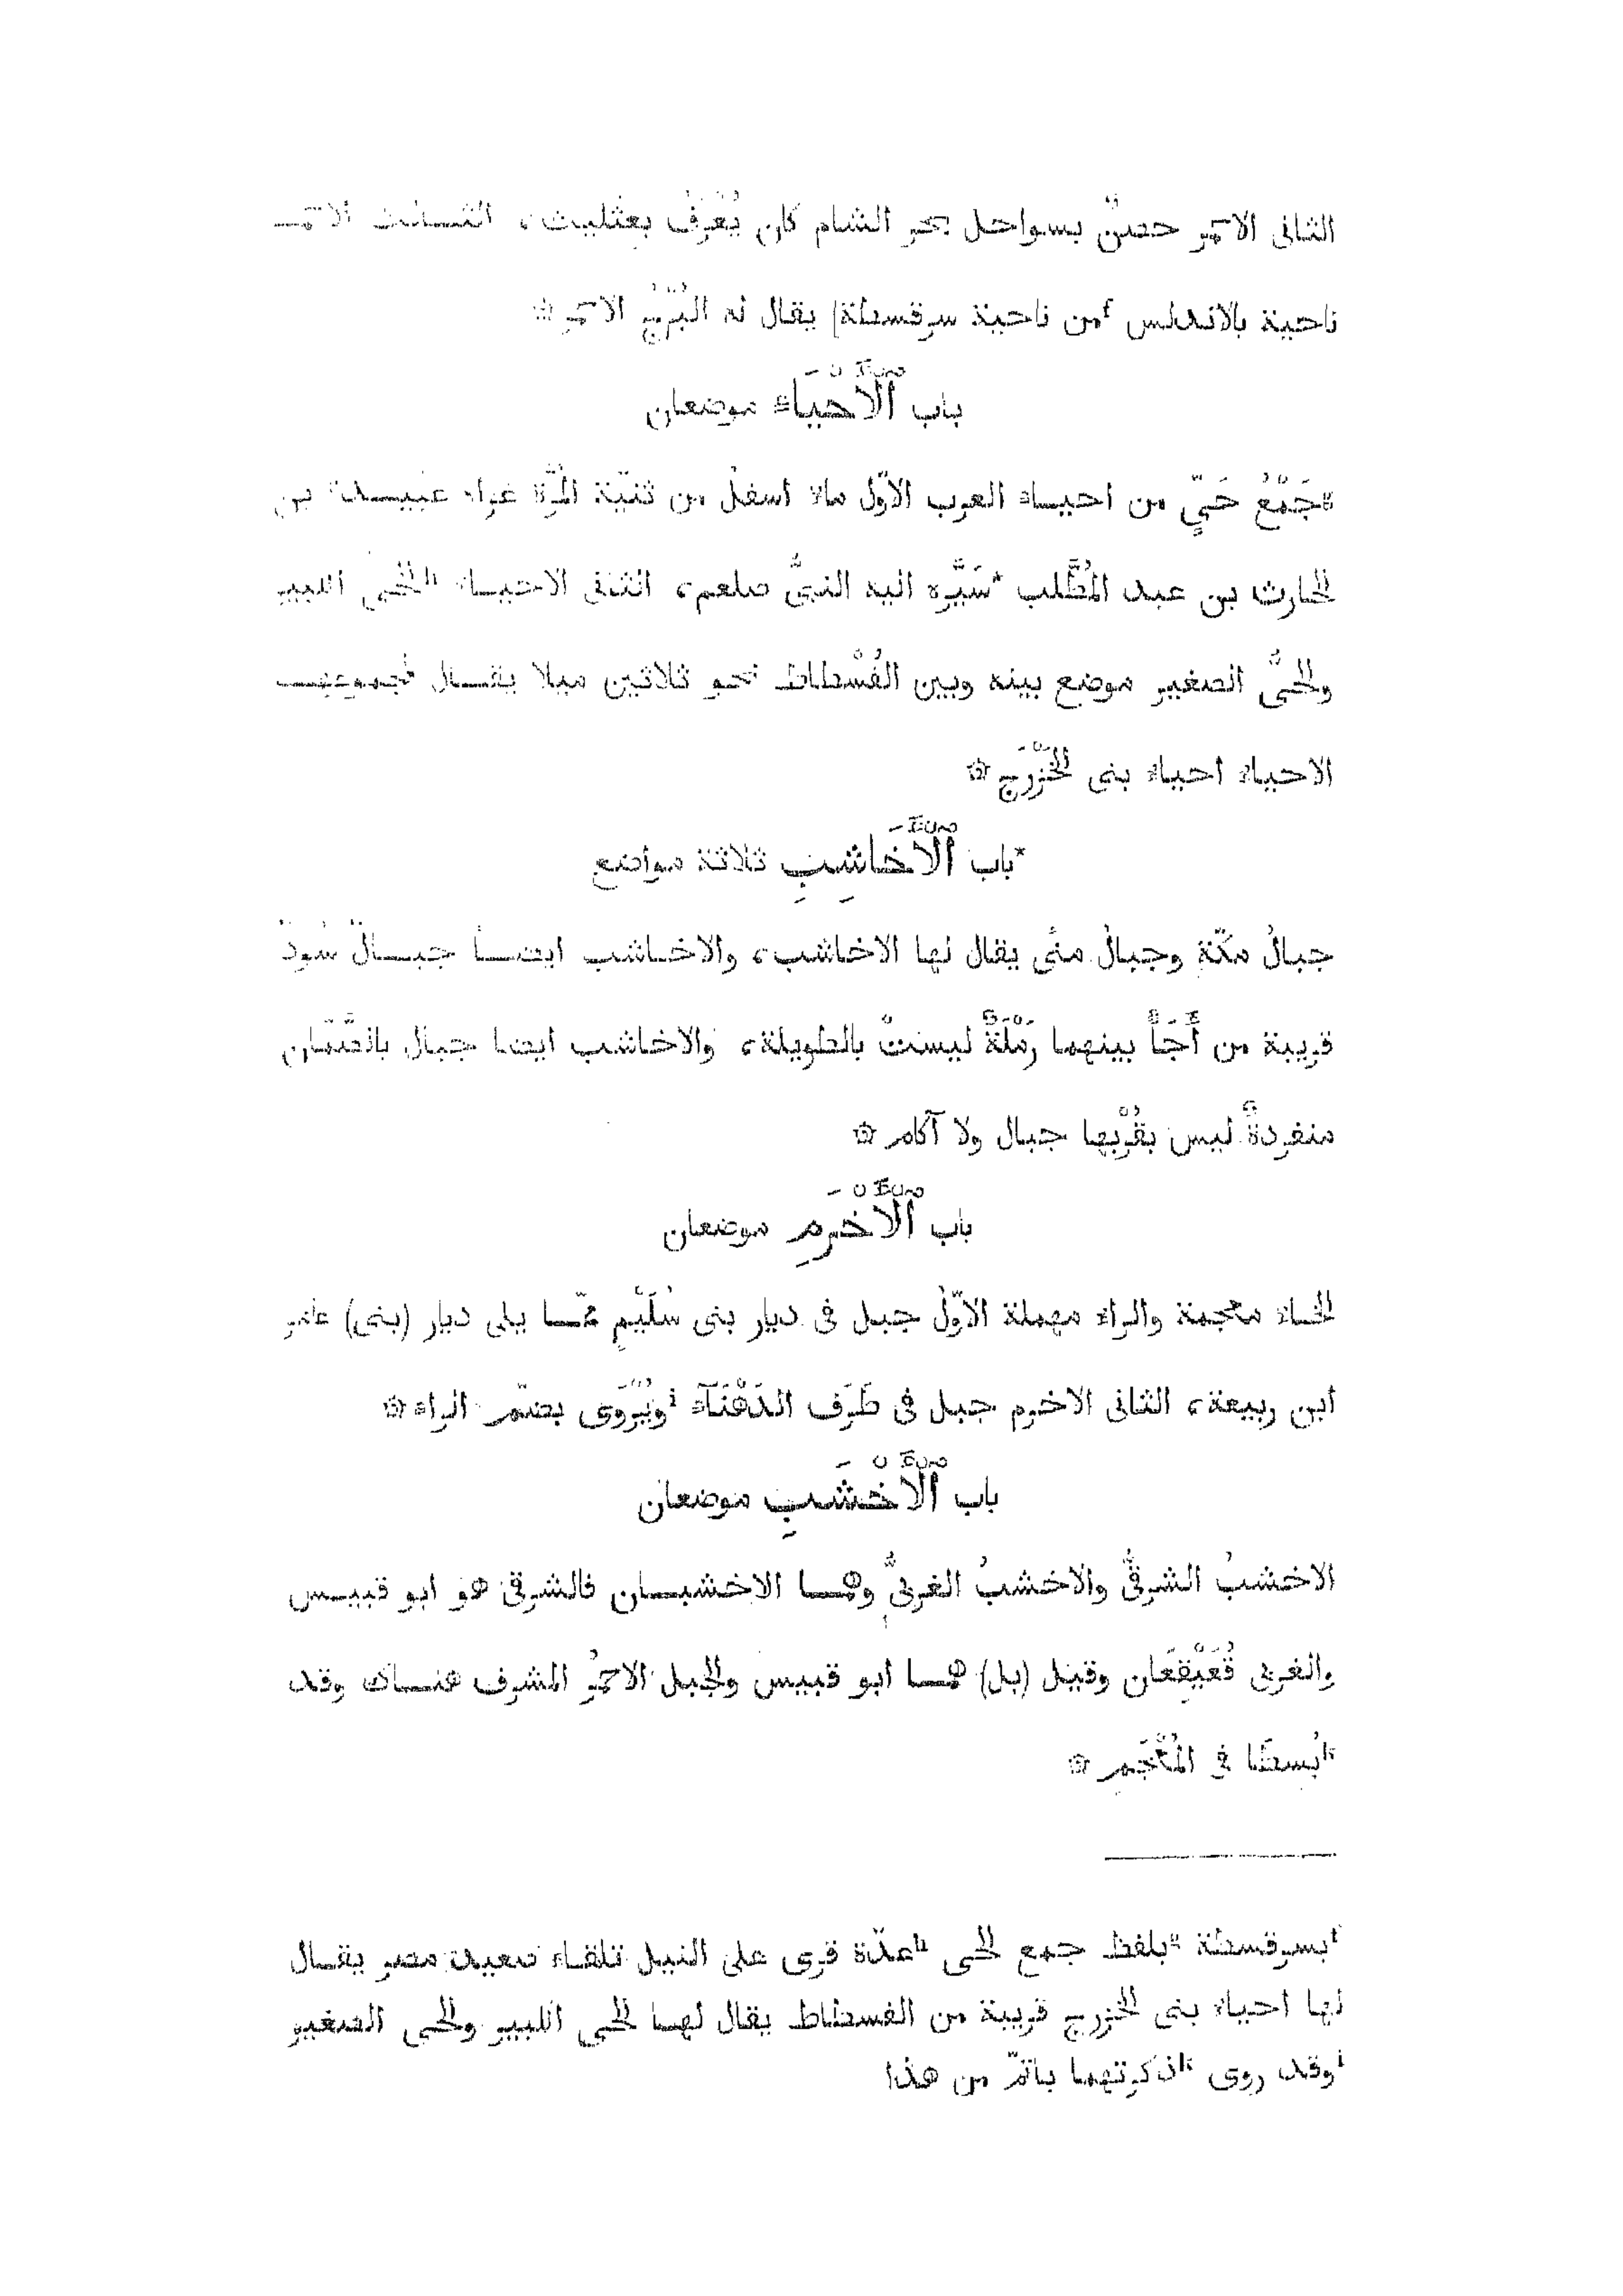 الثانى الاحمر حصنٌ بسواحل بحر الشام كان يُعْرَفُ بعثليث، الثالث الاحمر
ناحية بالاندلس ¹من ناحية سرقسطة) يقال له البُرْجُ الاحمر ۞
باب ٱلْأَحْيَاء موضعان
ᵍجَمْعُ حَىٍّ من احياء العرب الاوّل ماء اسفلَ من ثنيّة المَرَّة غزاه عبيدة بن
الحارث بن عبد المُطَّلب *سَيَّره اليه النبىُّ صلعم، الثانى الاحياء ʰالحَىُّ الكبير
والحَىُّ الصغير موضع بينه وبين الفُسْطاط نحو ثلاثين ميلا يقال لمجموعهما
الاحياء احياء بنى الخَزْرَج ۞
*باب ٱلْأَخَاشِبِ ثلاثة مواضع
جبالُ مكّة وجبالُ منًى يقال لها الاخاشب، والاخاشب ايضا جبالٌ سُودٌ
قريبة من أَجَأَ بينهما رَمْلَةٌ ليست بالطويلة، والاخاشب ايضا جبال بالصَّمّان
منفردةٌ ليس بقُرْبها جبال ولا آكام ۞
باب ٱلْأَخْرَمِ موضعان
الخاء معجمة والراء مهملة الاوّلُ جبل فى ديار بنى سُلَيْمٍ ممّا يلى ديار (بنى) عامر
ابن ربيعة، الثانى الاخرم جبل فى طَرَف الدَهْنَآء ⁱويُرْوَى بضمّ الراء ۞
باب ٱلْأَخْشَبِ موضعان
الاخشبُ الشرقىُّ والاخشبُ الغربىُّ وهما الاخشبان فالشرقى هو ابو قبيس
والغربى قُعَيْقِعَان وقيل (بل) هما ابو قبيس والجبل الاحمرُ المشرف هناك وقد
ᵏبُسطَا فى المُعْجَم ۞
¹بسرقسطة ᵍبلفظ جمع الحى ʰعدّة قرى على النيل تلقاء صعيد مصر يقال
لها احياء بنى الخزرج قريبة من الفسطاط يقال لهما الحى الكبير والحى الصغير
ⁱوقد روى ᵏذكرتهما باتمّ من هذا